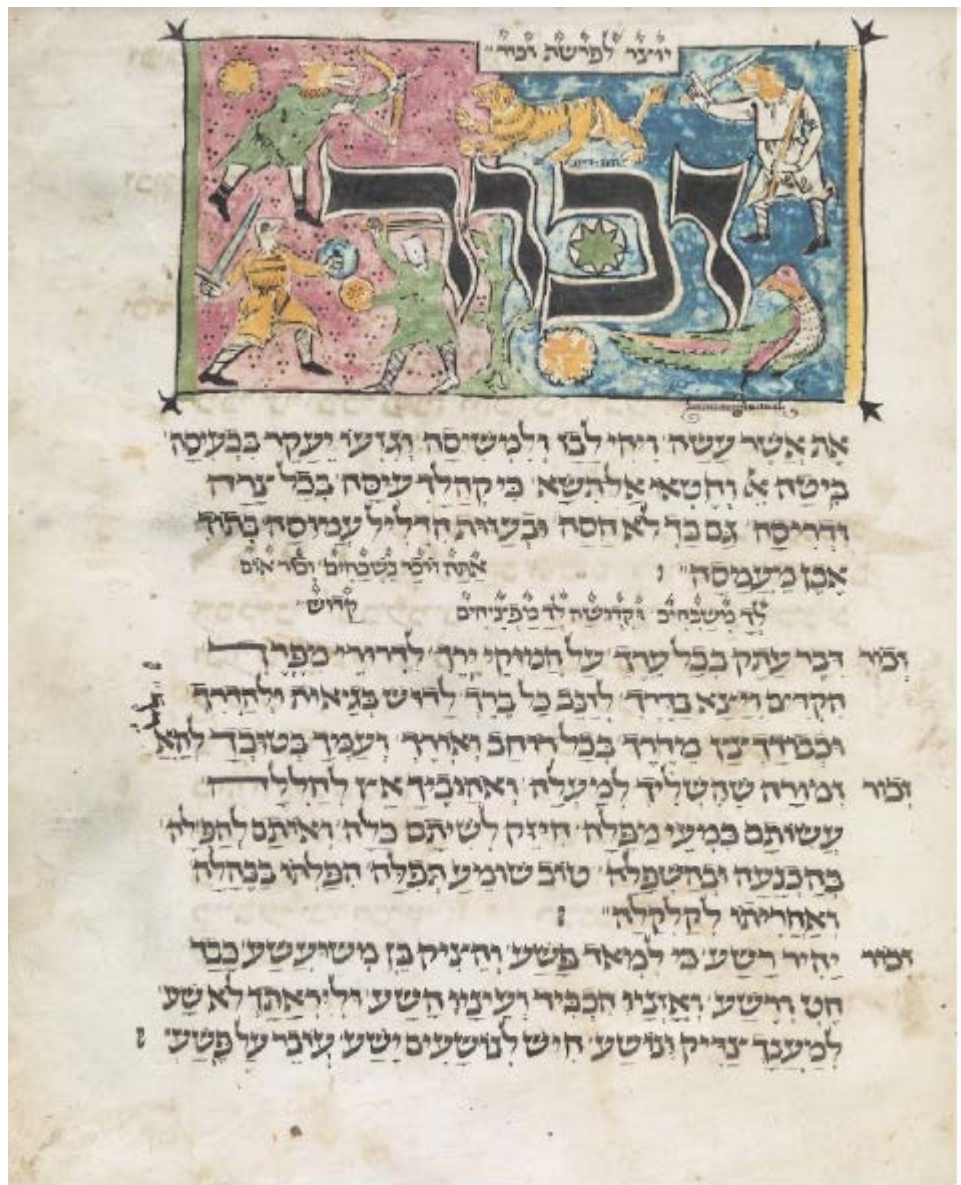 יוצר לפרשת זכור
זכור
את אשר עשה ויהי לבז ולמשיסה וגזעו יעקר בכעיסה
ביטה וחטאי אל תשא כי קהלך עיסה בכל צרה
ודריסה גם בך לא חסה ובעוות הדליל עמוסה בתוך
אבן מעמסה
לך משבחים וקדושה לך מפציחים קדוש
זכור דבר עתק בכל ערך על חמוקי ירך לדרורי מפרך
הקדים ויצא בדרך לזנב כל ברך לדוש בגיאות ולהדרך
בכל רוחב ואורך ועמך בטובך
זכור זמורה שהשליך למעלה ואהוביך אץ לחללה
עשותם כמעי מפלה חיזק לשיתם כלה ואיתם להפילה
בהכנעה ובהשפלה טוב שומע תפלה הפלתו בבהלה
ואחריתו לקלקלה
זכור יהיר רשע כי למאד פשע והציק בן משועשע כבד
חט ורשע ואזניו הכביד ועיניו השע וליראתך לא שע
למענך צדיק ונושע חיש לנושעים ישע עובר על פשע